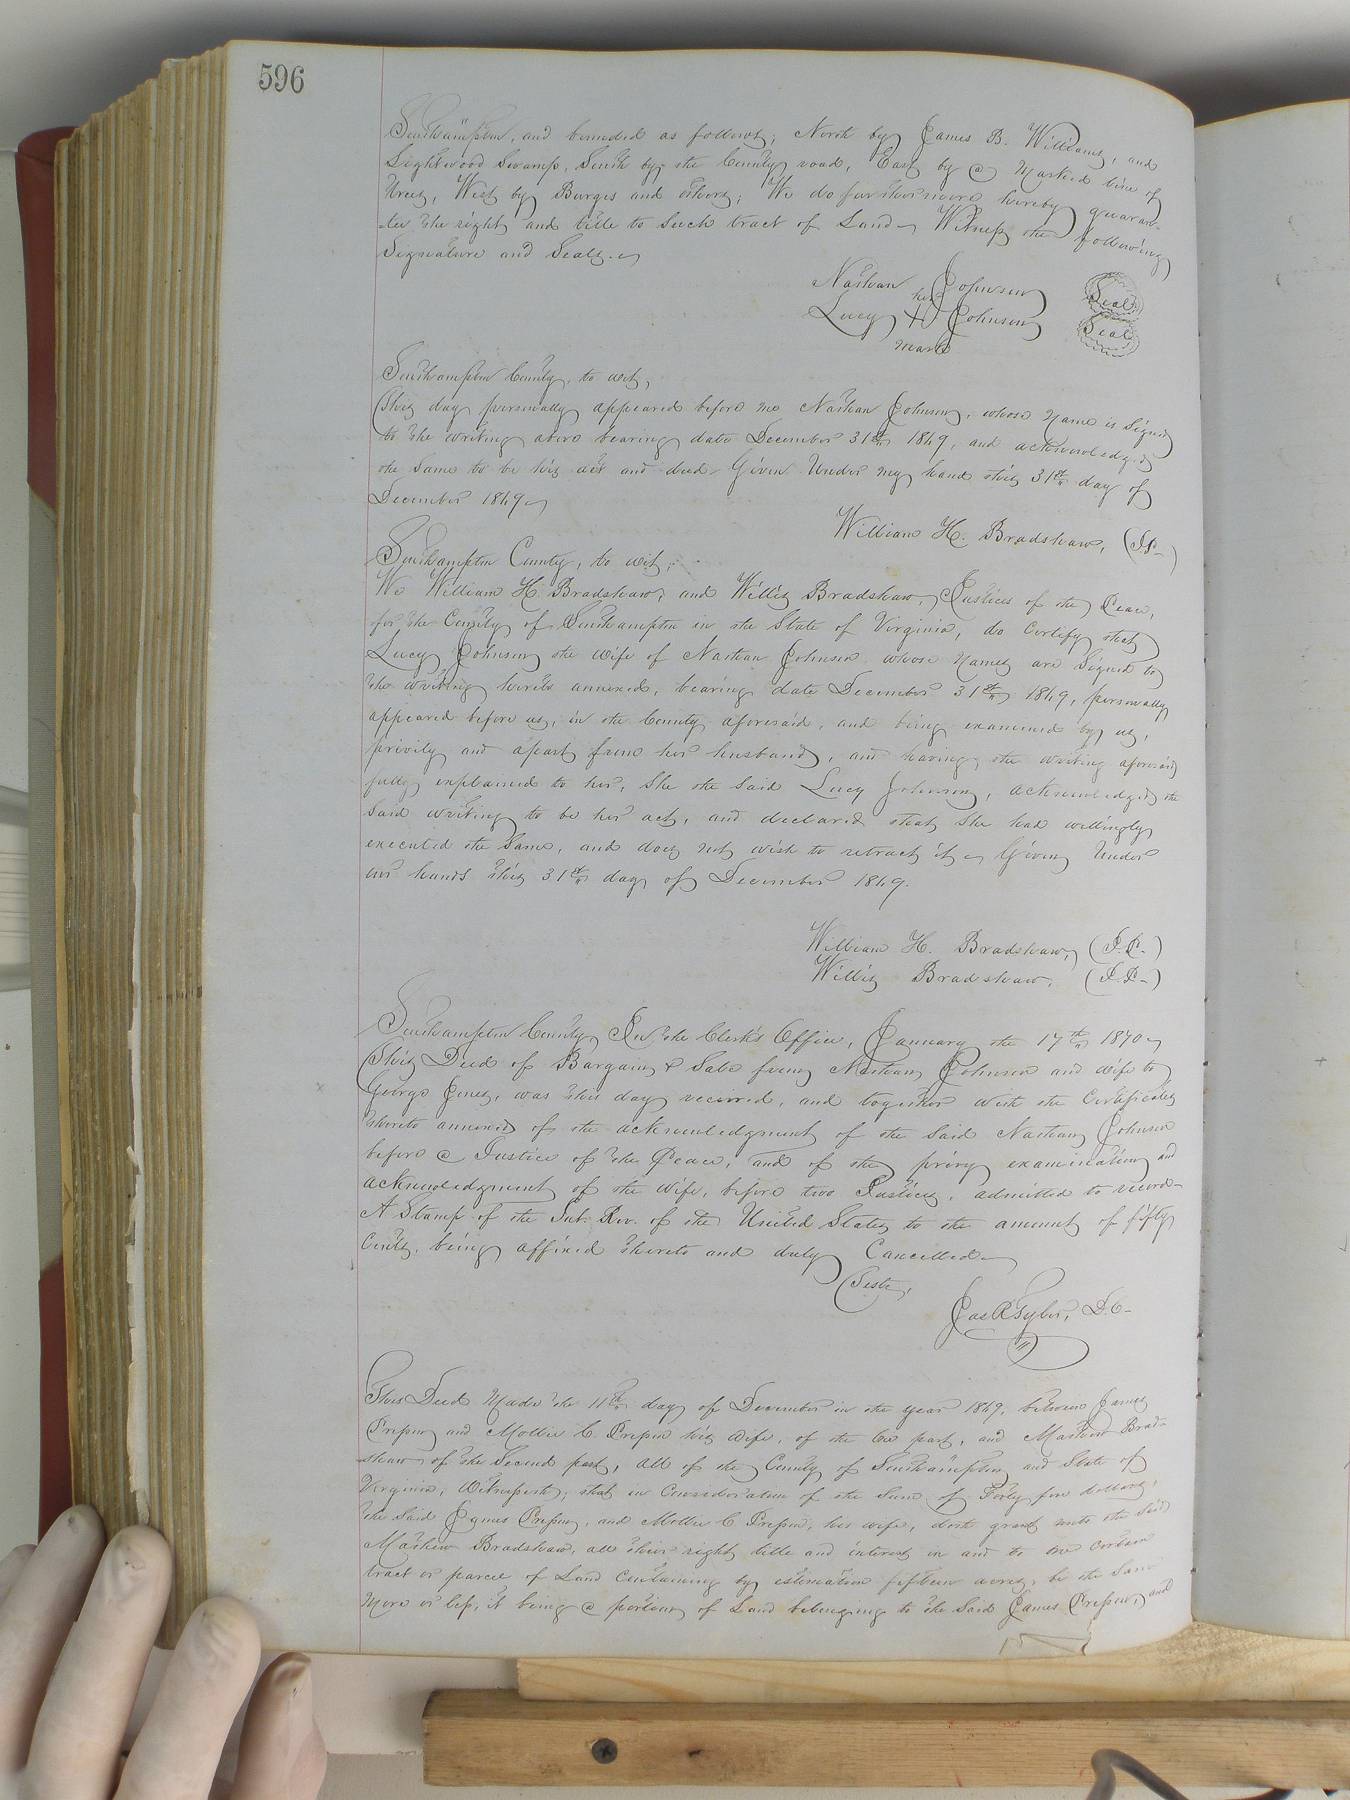 596
Southampton, and bounded as follows; North by James B. Williams, and
Lightwood Swamp, South by, the County road, East by a Marked line of
trees, West by Burges and others; We do furthermore hereby guaran-
-tee the right and title to such tract of Land- Witness the following
Signature and Seals.
Nathan Johnson Seal
her
Lucy + Johnson Seal
mark
Southampton County, to wit,
This day personally appeared before me Nathan Johnson, whose name is Signed
to the writing above bearing date December 31st 1869, and acknowledged
the Same to be his act and deed- Given Under my hand this 31st day of
December 1869
William H. Bradshaw, (J.P.)
Southampton County, to wit;
We William H. Bradshaw, and Willis Bradshaw, Justices of the Peace,
for the County of Southampton in the State of Virginia, do certify that
Lucy Johnson the wife of Nathan Johnson whose Names are Signed to
the writing hereto annexed, bearing date December 31st 1869, personally
appeared before us, in the County aforesaid, and being examined by us,
privily and apart from her husband, and having the writing aforesaid
fully explained to her, She the Said Lucy Johnson, acknowledged the
Said writing to be her act, and declared that She had willingly
executed the Same, and does not wish to retract it Given Under
our hands this 31st day of December 1869.
William H. Bradshaw, (J.P.)
Willis Bradshaw, (J.P.)
Southampton County, In the Clerk's Office, January the 17th 1870
This Deed of Bargain & Sale from Nathan Johnson and wife to
George Jones, was this day received, and together with the Certificates
thereto annexed of the acknowledgment of the Said Nathan Johnson
before a Justice of the Peace, and of the privy examination and
acknowledgment of the wife, before two Justices, admitted to record-
A Stamp of the Int. Rev. of the United States to the amount of fifty
Cents, being affixed thereto and duly Cancelled
Teste,
Jas R Tyler, D.C-
This Deed Made the 11th day of December in the year 1869, between James
Presson and Mollie C Presson his wife, of the one part, and Mathew Brad-
shaw of the Second part, all of the County of Southampton and State of
Virginia, Witnesseth; that in Consideration of the Sum of Forty five dollars,
the Said James Presson, and Mollie C Presson, his wife, doth grant unto the Said
Mathew Bradshaw, all their right title and interest in and to one certain
tract or parcel of Land Containing by estimation fifteen acres, be the Same
More or less, it being a portion of Land belonging to the Said James Presson, and